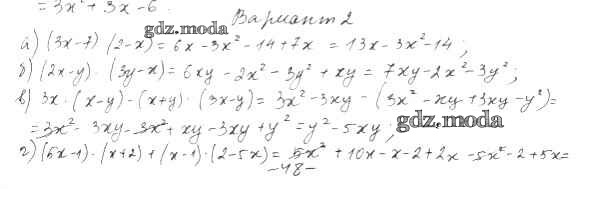 = 3x² + 3x - 6.
Вариант 2
gdz.moda
а) (3x-7)·(2-x) = 6x - 3x² - 14 + 7x = 13x - 3x² - 14;
б) (2x-y)·(3y-x) = 6xy - 2x² - 3y² + xy = 7xy - 2x² - 3y²;
в) 3x·(x-y) - (x+y)·(3x-y) = 3x² - 3xy - (3x² - xy + 3xy - y²) =
= 3x² - 3xy - 3x² + xy - 3xy + y² = y² - 5xy;
gdz.moda
г) (5x-1)·(x+2) + (x-1)·(2-5x) = 5x² + 10x - x - 2 + 2x - 5x² - 2 + 5x =
-48-